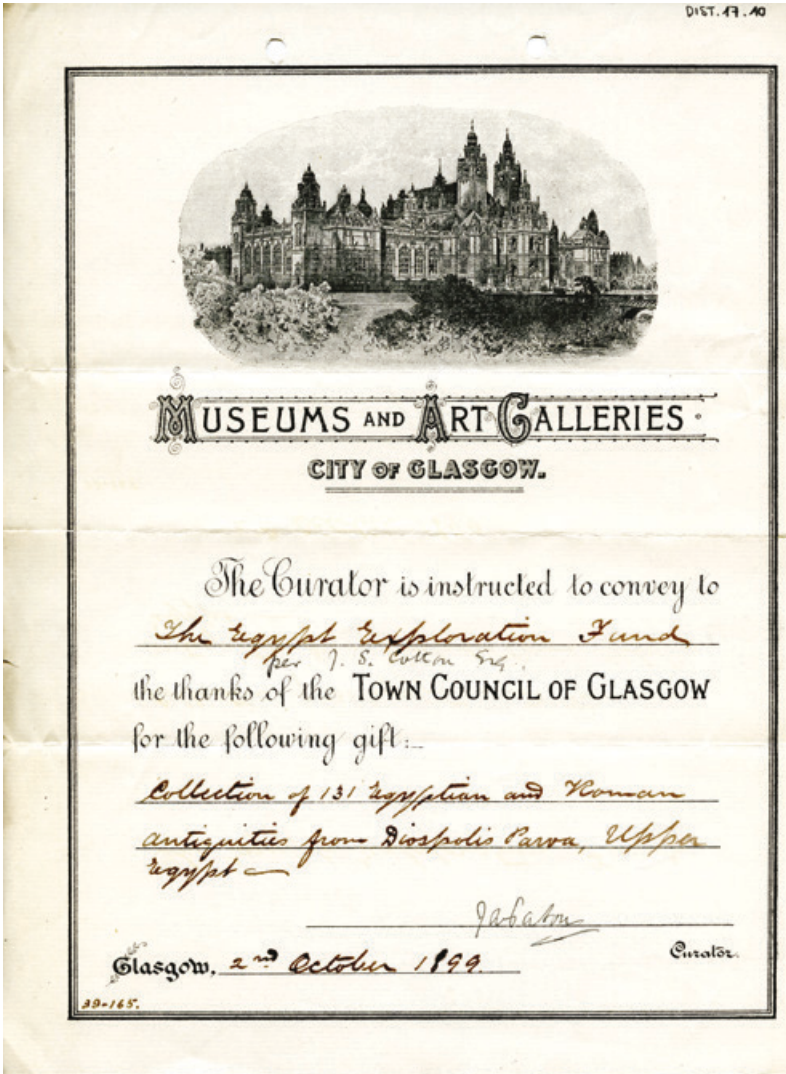 DIST.17.10
MUSEUMS AND ART GALLERIES.
CITY OF GLASGOW.
The Curator is instructed to convey to
The Egypt Exploration Fund
per J. S. Cotton Esq.
the thanks of the TOWN COUNCIL OF GLASGOW
for the following gift:—
Collection of 131 Egyptian and Roman
antiquities from Diospolis Parva, Upper
Egypt —
J Paton
Curator.
Glasgow, 2nd October 1899.
39-165.